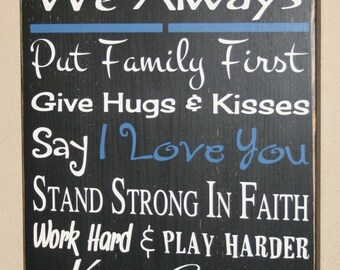 We Always
Put Family First
Give Hugs & Kisses
Say I Love You
Stand Strong In Faith
Work Hard & Play Harder